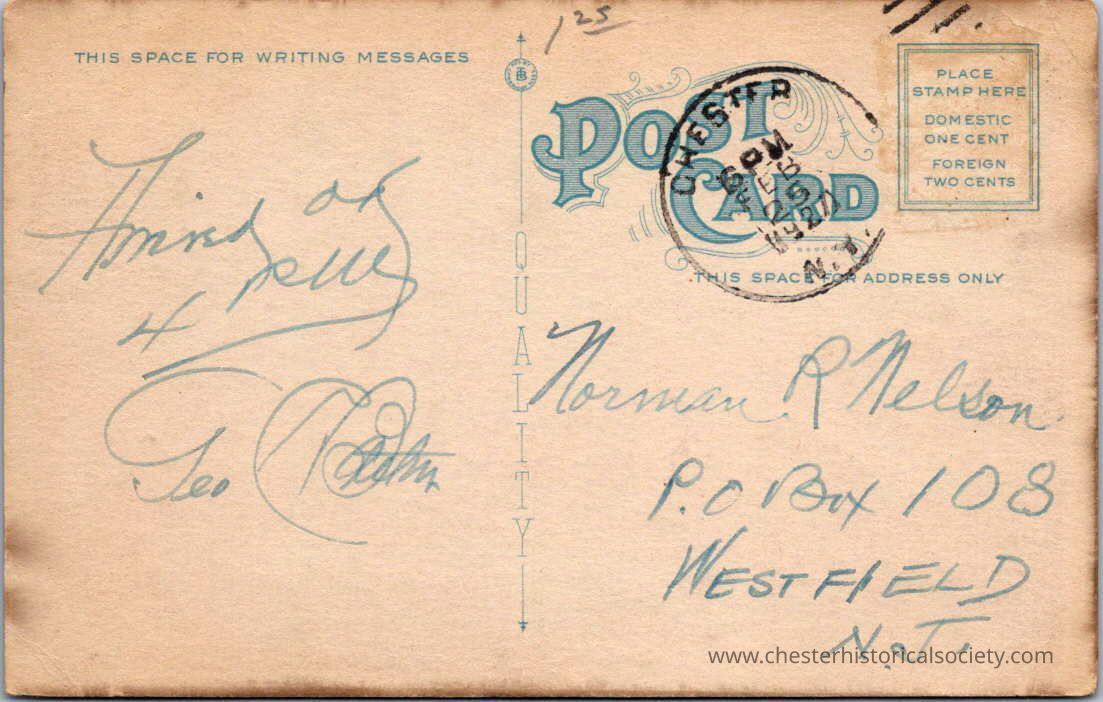 1 25
THIS SPACE FOR WRITING MESSAGES
Arrived OK
4 PM
Geo
QUALITY
POST CARD
CHESTER
N.Y.
6 PM
FEB
25
1927
PLACE
STAMP HERE
DOMESTIC
ONE CENT
FOREIGN
TWO CENTS
THIS SPACE FOR ADDRESS ONLY
Norman R Nelson
P.O Box 108
WESTFIELD
N.J.
www.chesterhistoricalsociety.com